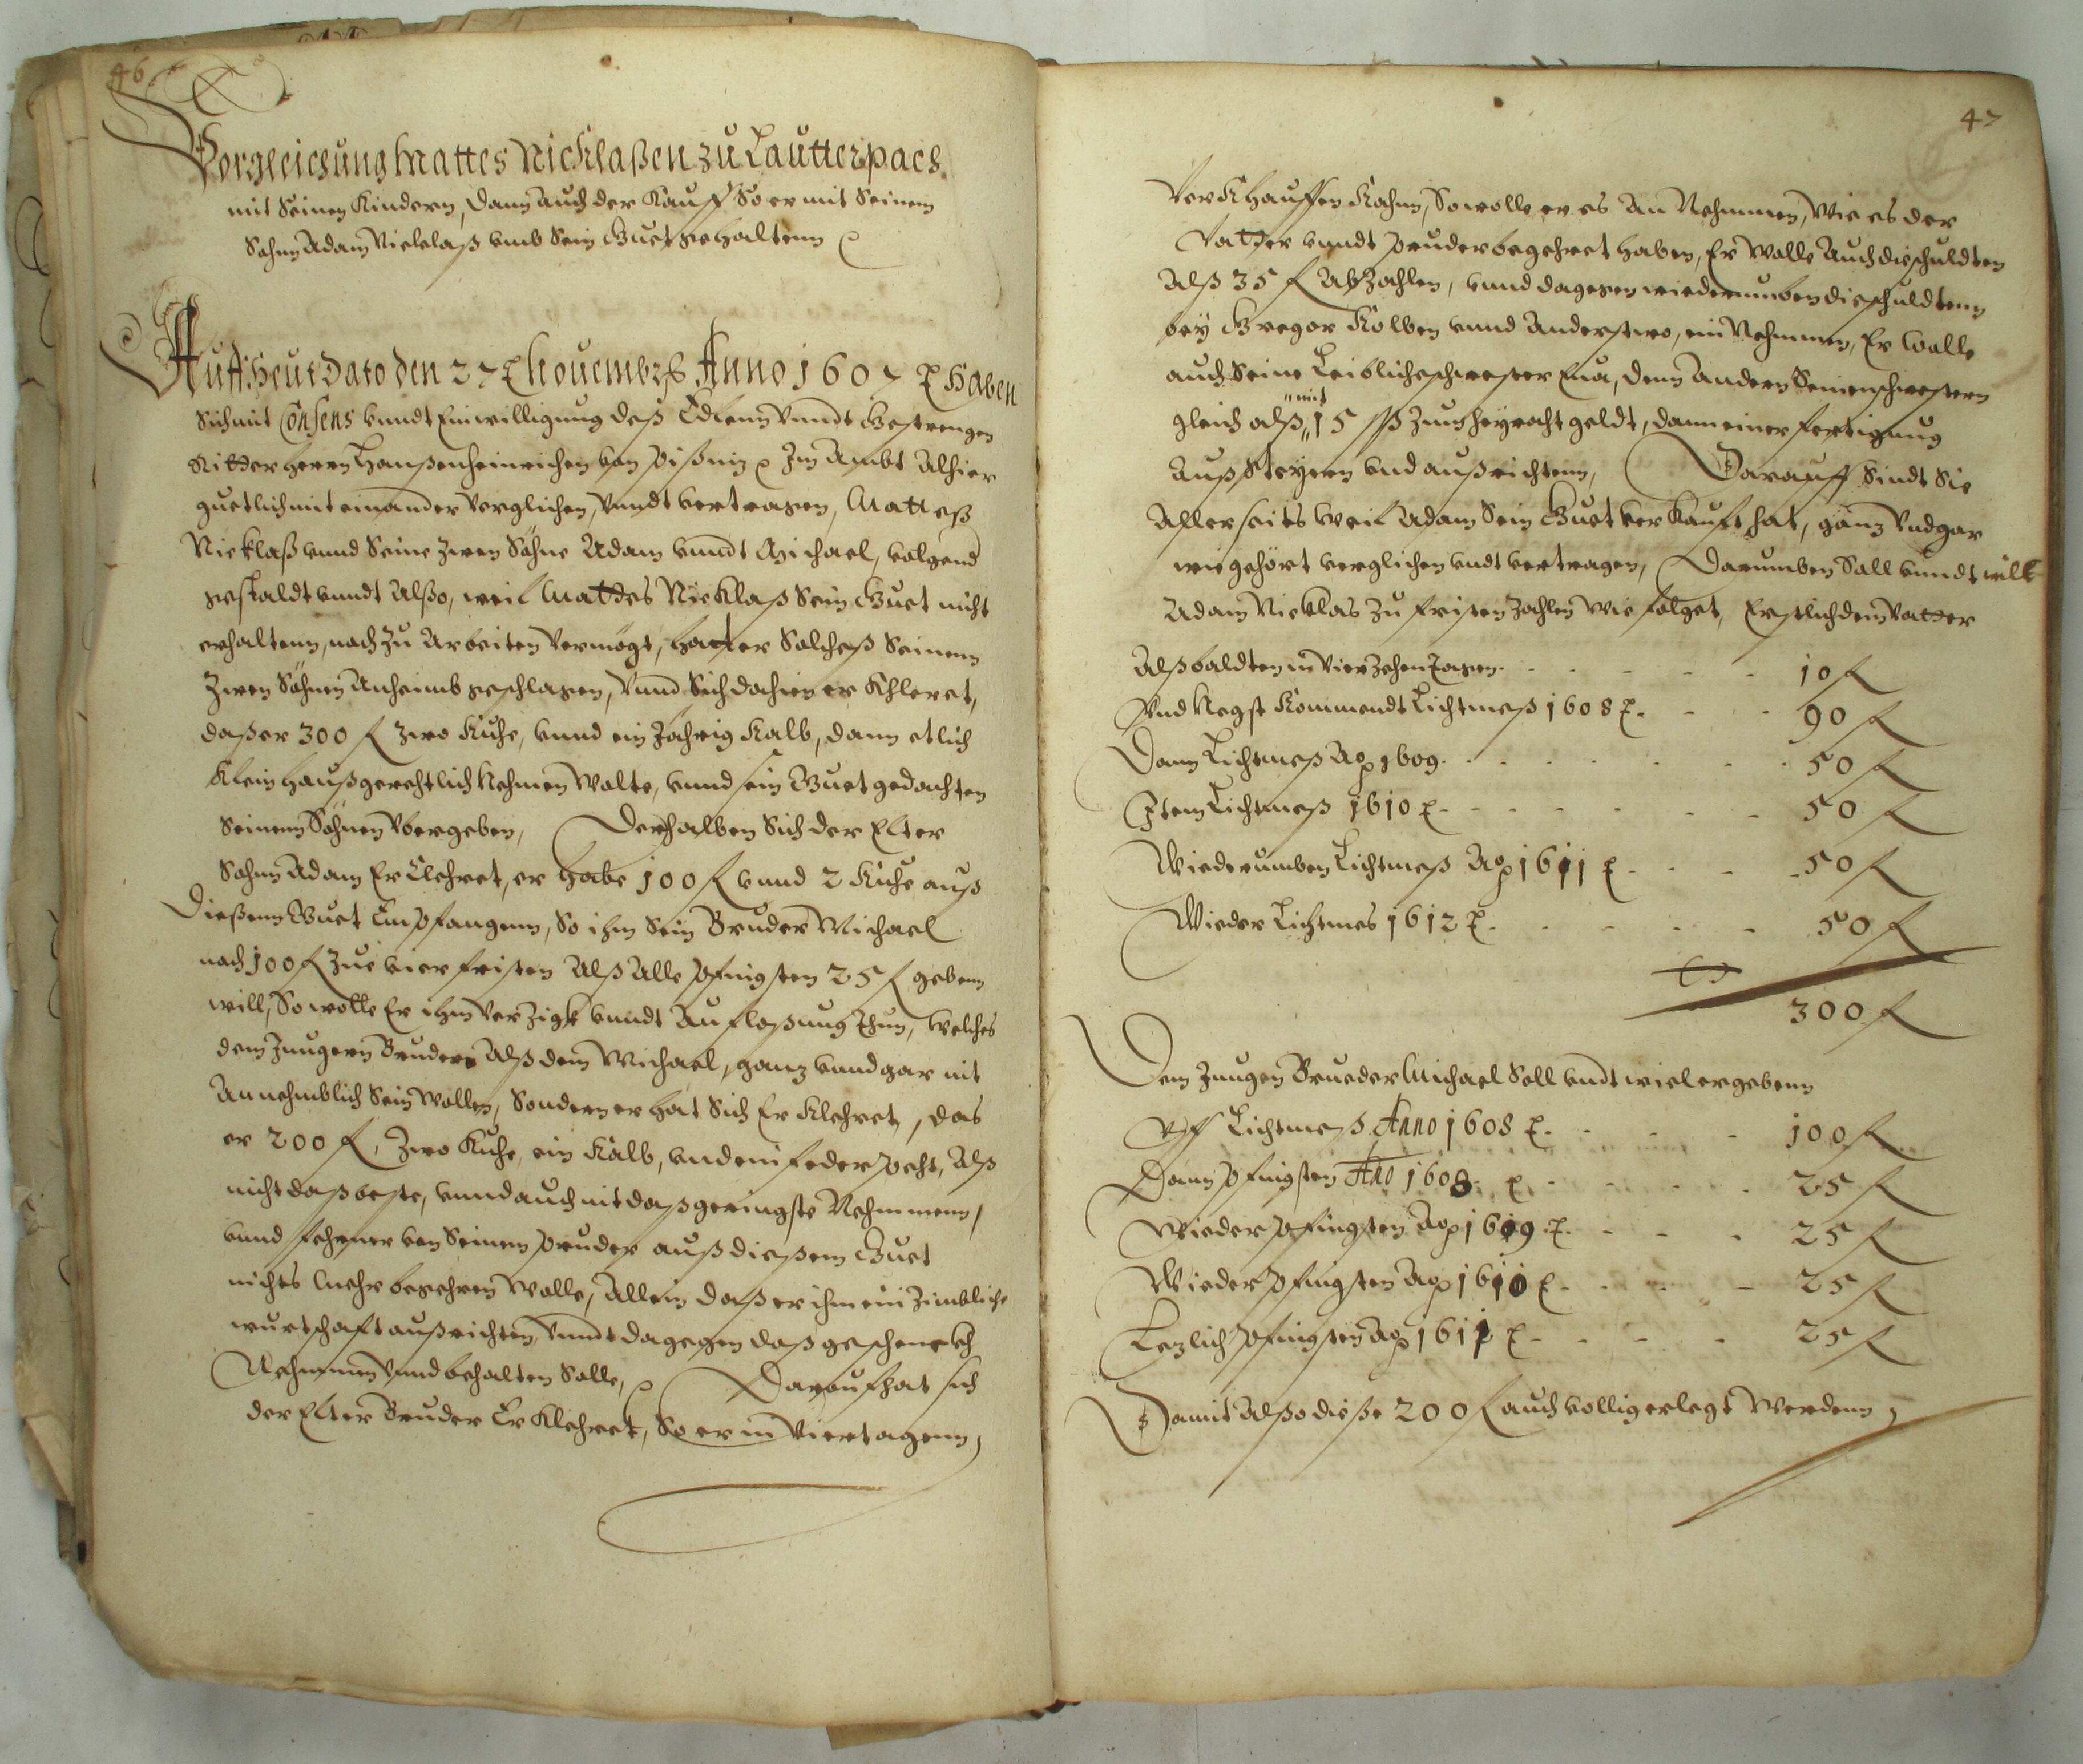 46
Vorgleichung Mattes Nicklaßen zu Lautterpach
mit Seinen Kindern, dann auch der Kauff So er mit Seinem
Sohnn Adam Nicklaß umb Sein Guet gehaltenn
Auff Heut Dato den 27 Nouembris Anno 1607 Haben
Sich mit Consens vnndt Einwilligung deß Edlenn vnndt Gestrengen
Ritter Herrn Hanßen Heinrichen von Pißniz Im Ambt Alhier
guetlich mit einander Verglichen, vnndt vertragen, Matteß
Nicklaß vnnd Seine zwen Söhne Adam vnndt Michael, volgend
gestaldt vnndt Alßo, weil Mattes Nicklaß Sein Guet nicht
erhaltenn, nach zu Arbeiten vermögt, hatt er Solcheß Seinenn
Zwen Söhnen Anheimb geschlagen, Vnnd Sich dahin er Khleret,
daß er 300 f zwo Kühe, vnnd ein Jährig Kalb, dann etlich
Klein Haußgerechtlich Nehmen Wolte, vnnd sein Guet gedachten
Seinenn Söhnen Vbergeben, Derhalben Sich der Elter
Sohnn Adam Er Clehret, er habe 100 f vnnd 2 Kühe auß
dießenn Guet Empfangenn, So ihm Sein Bruder Michael
nach 100 f Zue vier fristen Alß Alle Pfingsten 25 f gebenn
will, So wolle Er ihm Verzigk vnndt Auflaßung Thun, welches
dem Jungern Bruder Alß dem Michael, ganz vnnd gar nit
Annehmblich Sein Wollen, Sondern er hat Sich Er Klehret, das
er 200 f, Zwo Kühe, ein Kalb, vnd ein feder Pecht, Alß
nicht daß beste, vnnd auch nit daß geringste Nehmmenn,
vnnd fehrner von Seinem Pruder auß dießem Guet
nichts Mehr begehren Wolle, Allein daß er ihm ein Zimbliche
wurtschaft außrichten, vnndt dagegen daß geschenckh
Nehmmen vnnd behalten Solle, Darauf hat sich
der Elter Bruder Er Klehret, So er in Viertagenn,
47
Ver Khauffen Kahnn, So wolle er es An Nehmmen, Wie es der
Vatter vnndt Pruder begehret haben, Er Wolle Auch die Schuldten
Alß 35 f Abzahlen, vnnd dagegen wiederumben die Schuldtenn
bey Gregor Kolben vnnd Anderstwo, ein Nehmmen, Er Wolle
auch Seine Leibliche Schwester Eua, denn Andern Seinen Schwestern
gleich alß, mit 15 ßß Zum heyracht geldt, dann einer fertigung
Auß Steyern vnd außrichtenn, Darauff Sindt Sie
Aller seits weil Adam Sein Guet ver Kauft hat, ganz Vnd gar
wie gehört verglichen vndt vertragen, Darumben Sall vnndt will
Adam Nicklas Zu fristen Zahlen wie folget, Erstlich dem Vatter
Alßbaldten in Vierzehen Tagen. 10 f
Vnd Negst Kommendt Lichtmeß 1608 90 f
Dann Lichtmeß Ao 1609. 50 f
Item Lichtmeß 1610 50 f
Wiederumben Lichtmeß Ao 1611 50 f
Wieder Lichtmes 1612 50 f
300 f
Dem Jungen Brueder Michael Soll vndt wiel er gebenn
Vff Lichtmeß Anno 1608 100 f
Dann Pfingsten Ano 1608 25 f
Wieder Pfingsten Ao 1609 25 f
Wieder Pfingsten Ao 1610 25 f
Lezlich Pfingsten Ao 1611 25 f
Damit Alßo dieße 200 f auch vollig erlegt Werdenn,